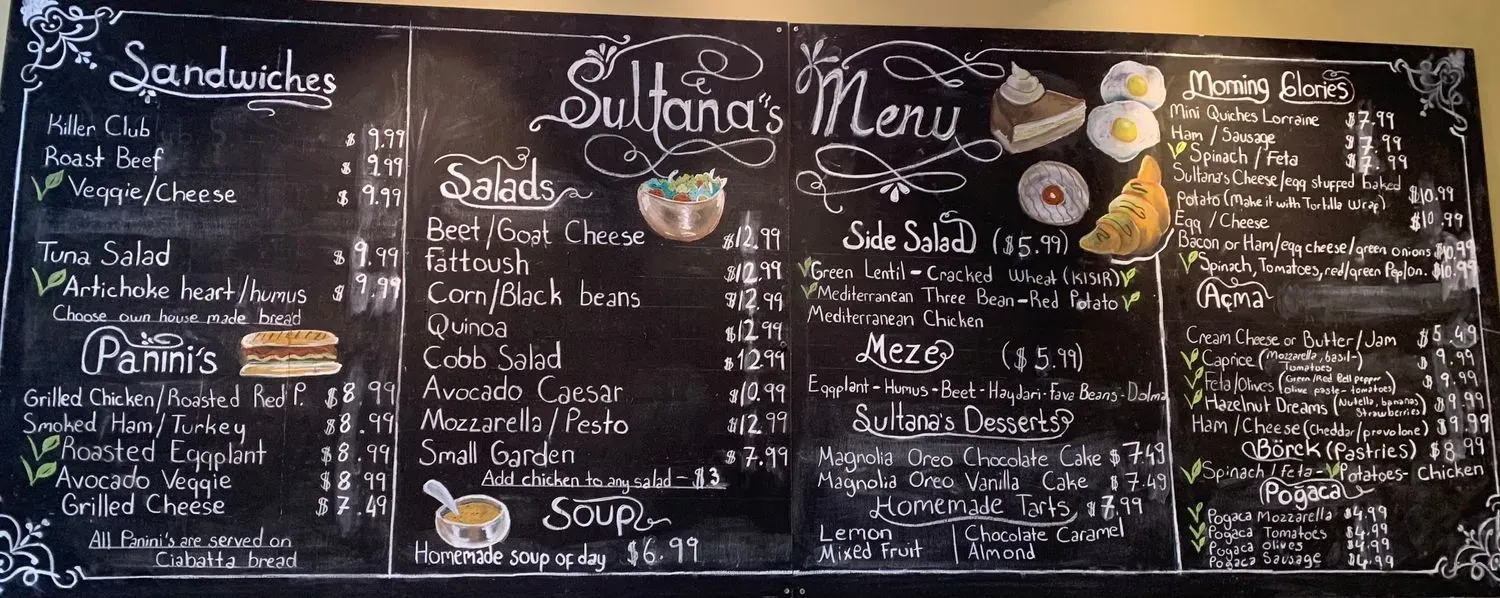 Sandwiches
Killer Club $ 9.99
Roast Beef $ 9.99
Veggie/Cheese $ 9.99
Tuna Salad $ 9.99
Artichoke heart/humus $ 9.99
Choose own house made bread
Panini's
Grilled Chicken/Roasted Red P. $8.99
Smoked Ham/Turkey $8.99
Roasted Eggplant $8.99
Avocado Veggie $8.99
Grilled Cheese $7.49
All Panini's are served on
Ciabatta bread
Sultana's Menu
Salads
Beet/Goat Cheese $12.99
Fattoush $12.99
Corn/Black beans $12.99
Quinoa $12.99
Cobb Salad $12.99
Avocado Caesar $10.99
Mozzarella/Pesto $12.99
Small Garden $7.99
Add chicken to any salad - $3
Soup
Homemade soup of day $6.99
Side Salad ($5.99)
Green Lentil - Cracked Wheat (KISIR)
Mediterranean Three Bean - Red Potato
Mediterranean Chicken
Meze ($5.99)
Eggplant - Humus - Beet - Haydari - Fava Beans - Dolma
Sultana's Desserts
Magnolia Oreo Chocolate Cake $7.49
Magnolia Oreo Vanilla Cake $7.49
Homemade Tarts $7.99
Lemon | Chocolate Caramel
Mixed Fruit | Almond
Morning Glories
Mini Quiches Lorraine $7.99
Ham / Sausage $7.99
Spinach / Feta $7.99
Sultana's Cheese/egg stuffed baked
potato (Make it with Tortilla Wrap) $10.99
Egg / Cheese $10.99
Bacon or Ham/egg cheese/green onions $10.99
Spinach, Tomatoes, red/green Pep/on. $10.99
Açma
Cream Cheese or Butter/Jam $5.49
Caprice (Mozzarella, basil- Tomatoes) $9.99
Feta/Olives (Green/Red Bell pepper olive paste-tomatoes) $9.99
Hazelnut Dreams (Nutella, bananas Strawberries) $9.99
Ham/Cheese (Cheddar/provolone) $9.99
Börek (Pastries) $8.99
Spinach / feta - Potatoes - Chicken
Pogaca
Pogaca Mozzarella $4.99
Pogaca Tomatoes $4.99
Pogaca Olives $4.99
Pogaca Sausage $4.99